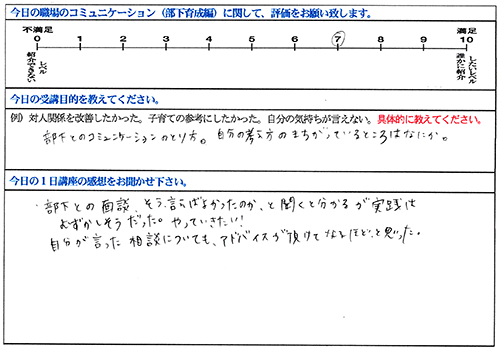 今日の職場のコミュニケーション（部下育成編）に関して、評価をお願い致します。
不満足 満足
0 1 2 3 4 5 6 7 8 9 10
紹介できないレベル 誰かに紹介したいレベル
今日の受講目的を教えてください。
例）対人関係を改善したかった。子育ての参考にしたかった。自分の気持ちが言えない。具体的に教えてください。
部下とのコミュニケーションのとり方。自分の考え方のまちがっているところはなにか。
今日の１日講座の感想をお聞かせ下さい。
・部下との面談、そう言えばよかったのか、と聞くと分かるが実践は
むずかしそうだった。やっていきたい！
自分が言った相談についても、アドバイスが頂けてなるほど、と思った。